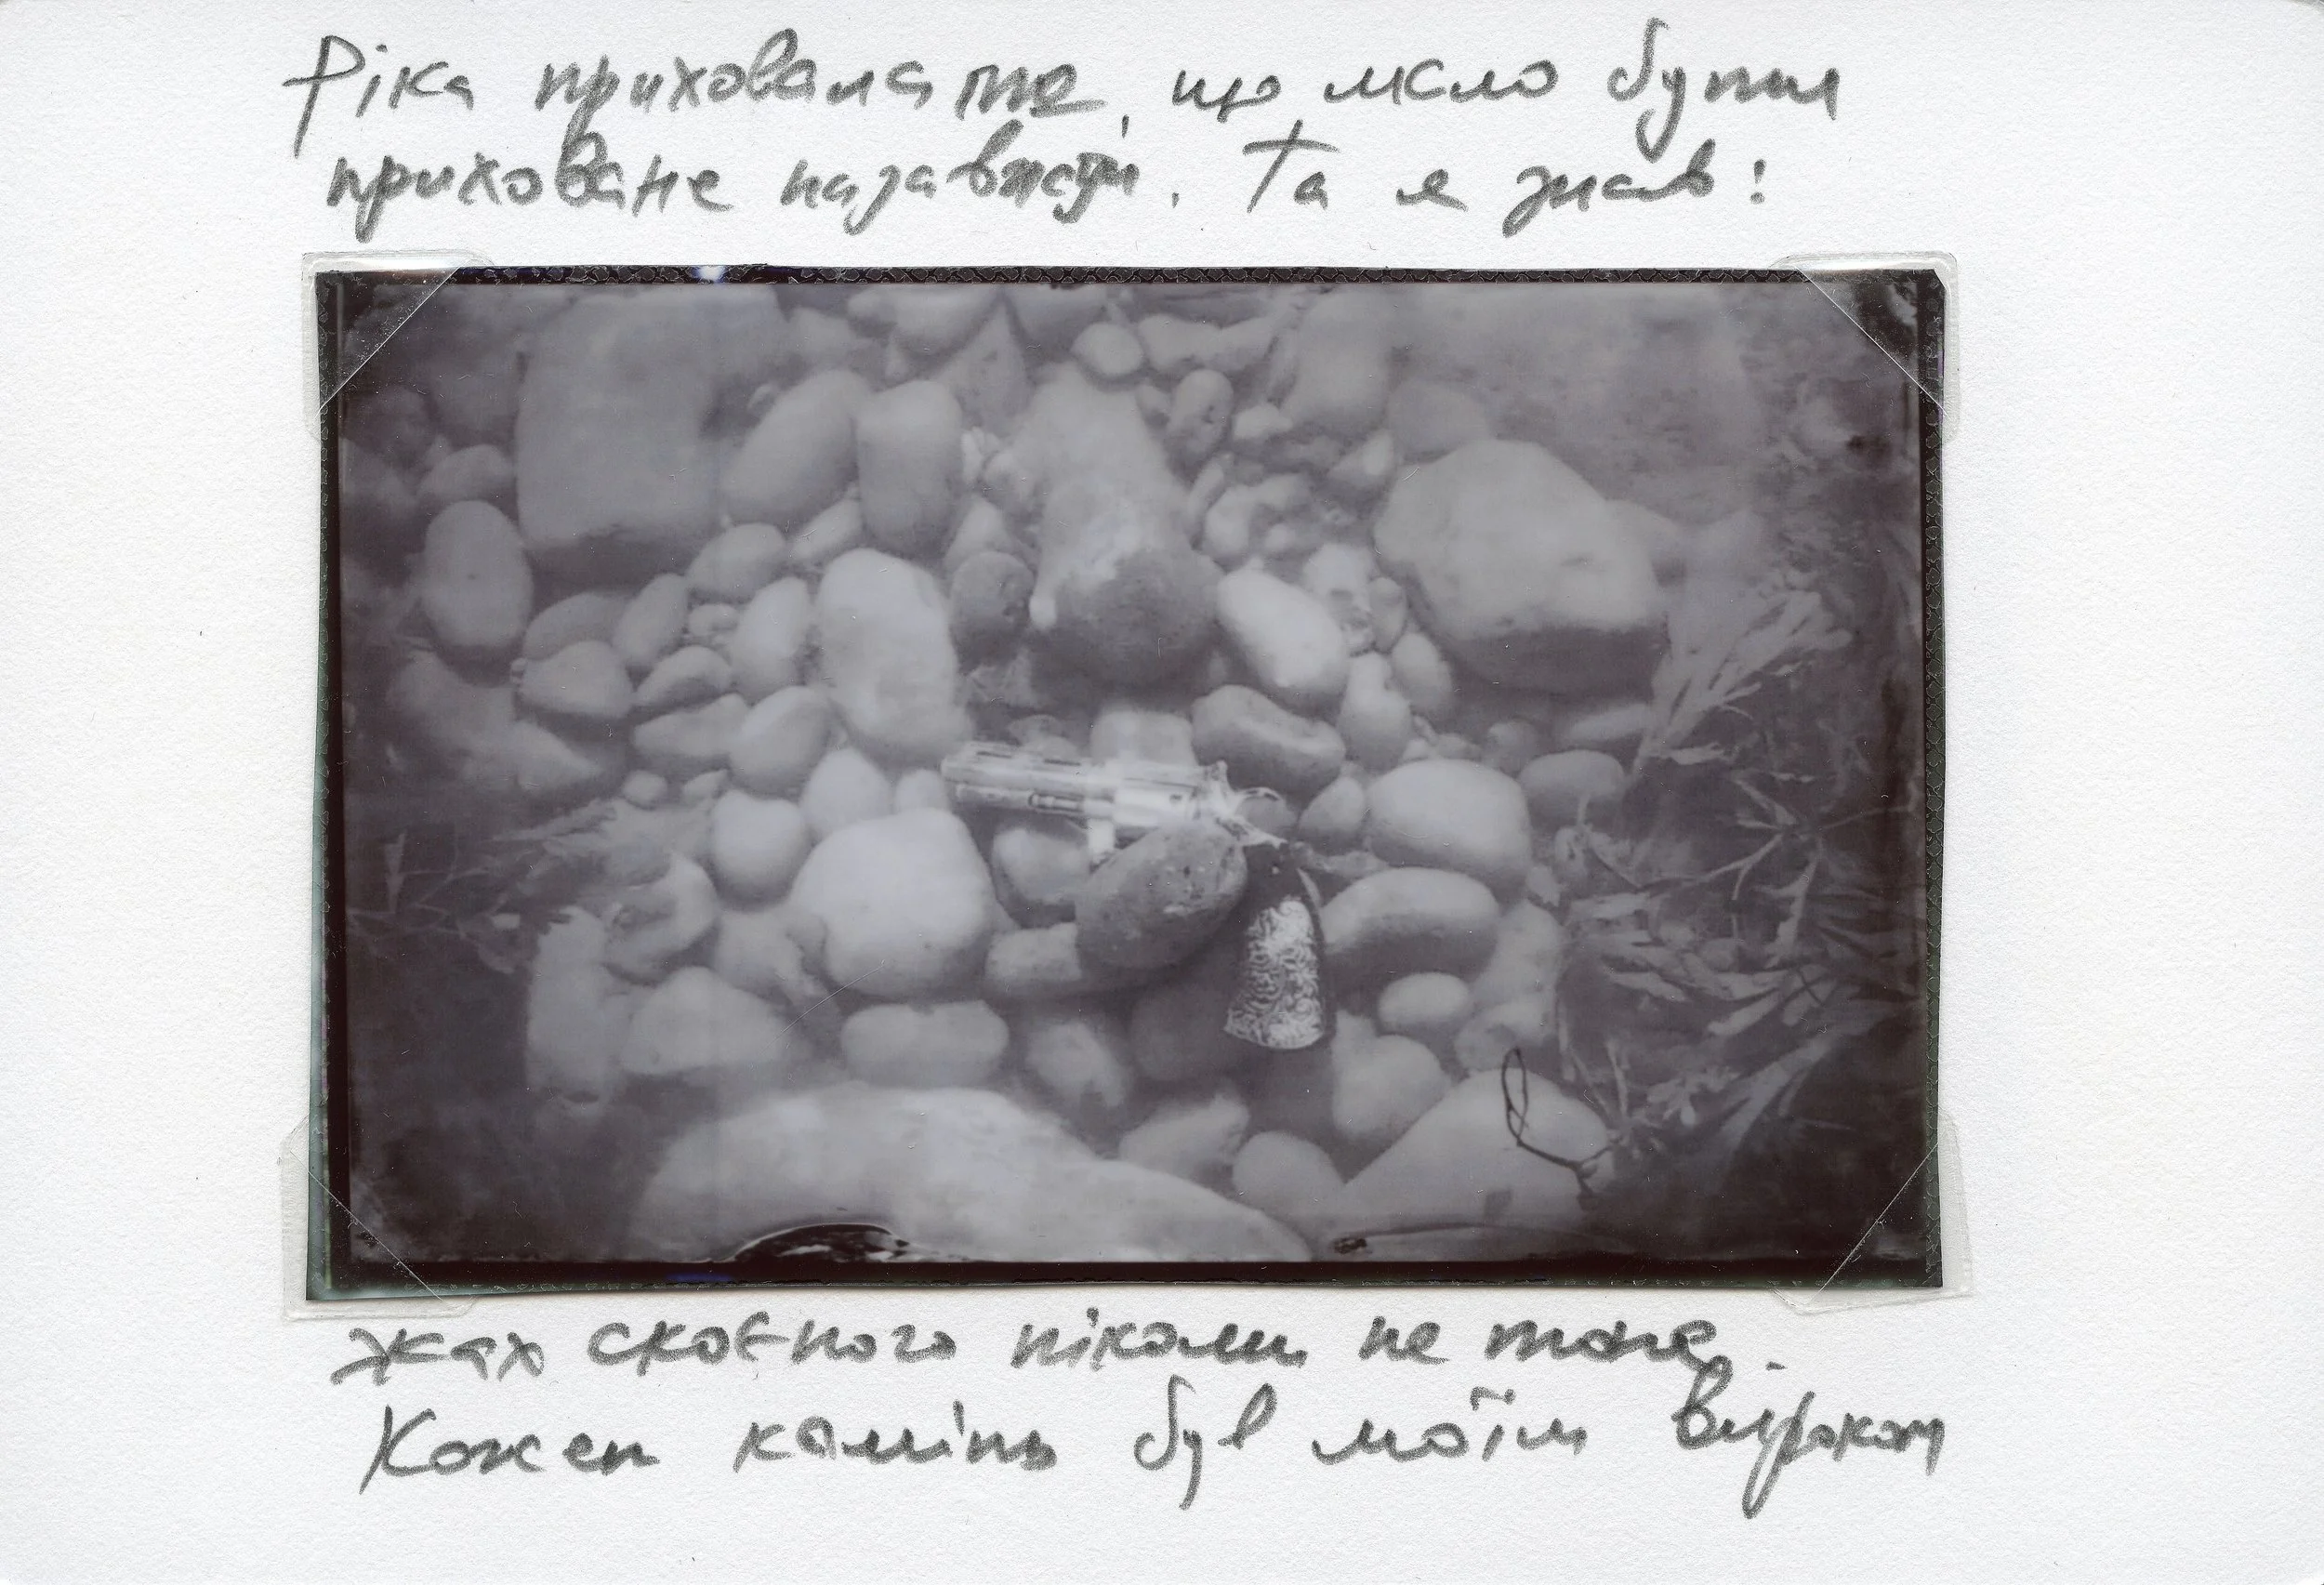 Ріка приховала те, що мало бути
приховане назавжди. Та я знав:
жах скоєного ніколи не тоне.
Кожен камінь був моїм вироком